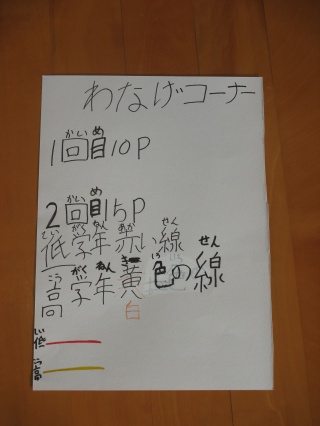 わなげコーナー
かい め
1回目10P
かい め
2回目15P
てい がく ねん あか せん
低学年 赤い線
こう がく ねん き いろ せん
高学年 黄色の線
白
てい
低
こう
高